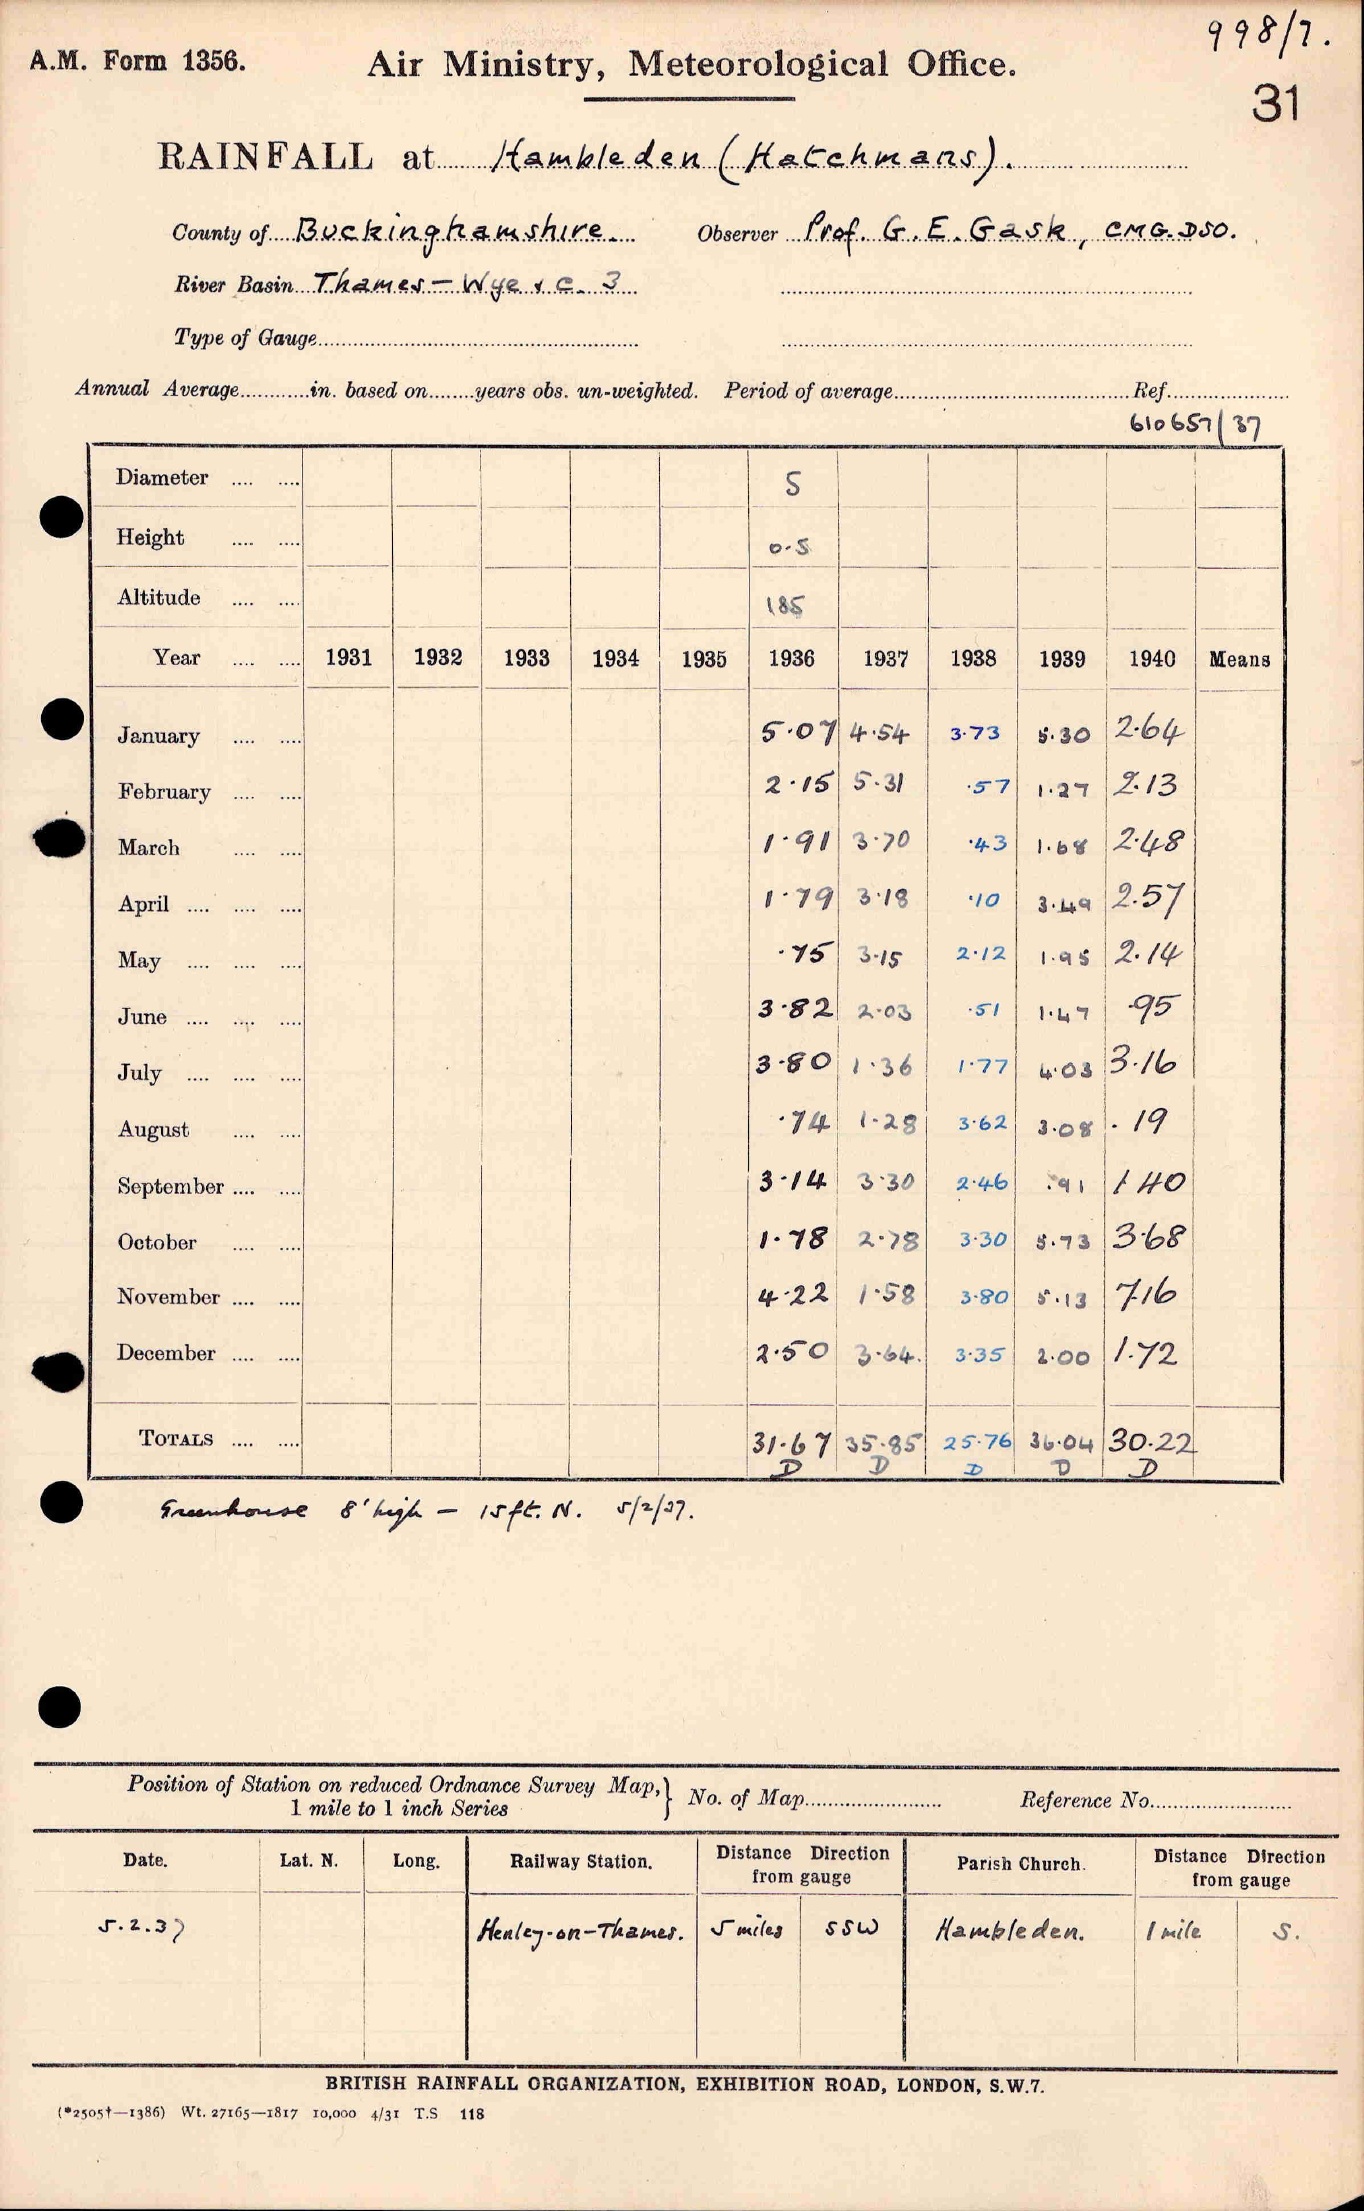 998/7.
A.M. Form 1356.
Air Ministry, Meteorological Office.
31
RAINFALL at Hambleden (Hatchmans).
County of Buckinghamshire. Observer Prof. G. E. Gask, CMG. DSO.
River Basin Thames — Wye & c. 3
Type of Gauge
Annual Average in. based on years obs. un-weighted. Period of average Ref.
610657/37
Diameter 5
Height 0.5
Altitude 185
Year 1931 1932 1933 1934 1935 1936 1937 1938 1939 1940 Means
January 5.07 4.54 3.73 5.30 2.64
February 2.15 5.31 .57 1.27 2.13
March 1.91 3.70 .43 1.68 2.48
April 1.79 3.18 .10 3.49 2.57
May .75 3.15 2.12 1.95 2.14
June 3.82 2.03 .51 1.47 .95
July 3.80 1.36 1.77 4.03 3.16
August .74 1.28 3.62 3.08 .19
September 3.14 3.30 2.46 .91 1.40
October 1.78 2.78 3.30 5.73 3.68
November 4.22 1.58 3.80 5.13 7.16
December 2.50 3.64. 3.35 2.00 1.72
TOTALS 31.67 35.85 25.76 36.04 30.22
D D D D D
Greenhouse 8' high — 15 ft. N. 5/2/37.
Position of Station on reduced Ordnance Survey Map,} No. of Map Reference No.
1 mile to 1 inch Series
Date. Lat. N. Long. Railway Station. Distance Direction from gauge Parish Church. Distance Direction from gauge
5.2.37 Henley-on-Thames. 5 miles SSW Hambleden. 1 mile S.
BRITISH RAINFALL ORGANIZATION, EXHIBITION ROAD, LONDON, S.W.7.
(*2505†—1386) Wt. 27165—1817 10,000 4/31 T.S 118